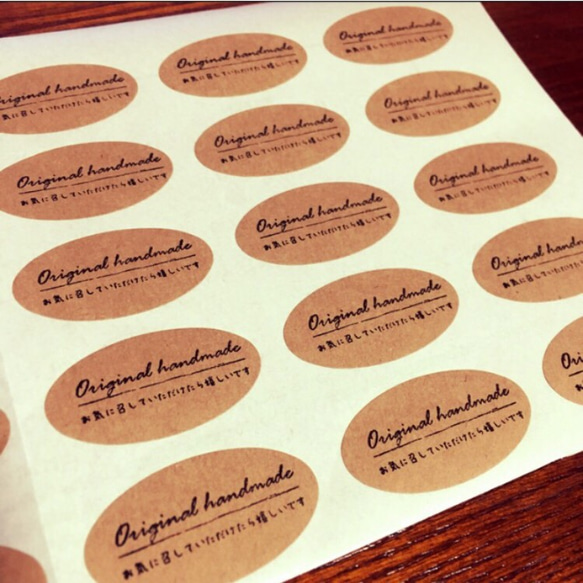 Original handmade
お気に召していただけたら嬉しいです
Original handmade
お気に召していただけたら嬉しいです
Original handmade
お気に召していただけたら嬉しいです
Original handmade
お気に召していただけたら嬉しいです
Original handmade
お気に召していただけたら嬉しいです
Original handmade
お気に召していただけたら嬉しいです
Original handmade
お気に召していただけたら嬉しいです
Original handmade
お気に召していただけたら嬉しいです
Original handmade
お気に召していただけたら嬉しいです
Original handmade
お気に召していただけたら嬉しいです
Original handmade
お気に召していただけたら嬉しいです
Original handmade
お気に召していただけたら嬉しいです
Original handmade
お気に召していただけたら嬉しいです